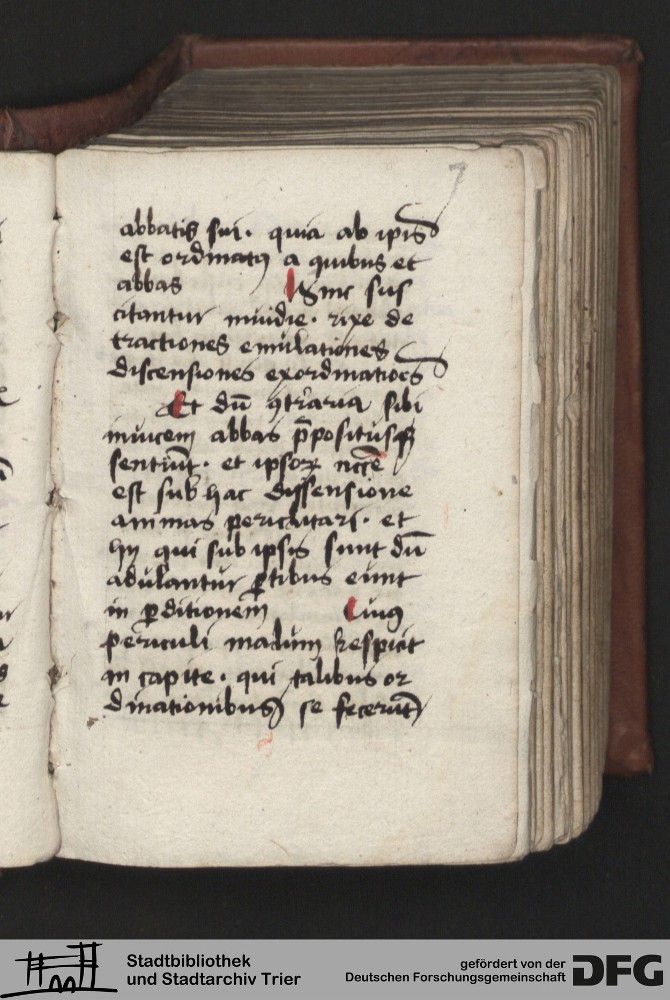 7
abbatis sui. quia ab ip̄is
est ordinatꝰ a quibus et
abbas Hinc sus
citantur inuidie. rixe de
tractiones emulationes
discensiones exordinatiōes
Et dū ꝯtͬaria sibi
inuicem abbas p̄positusqꝫ
sentiūt. et ipsoꝝ nc̄c̄e
est sub hac dissensione
animas periclitari. et
hij qui sub ipsis sunt dū
adulantur ꝑtibus eunt
in ꝑditionem Cuiꝰ
periculi malum respicit
in capite. qui talibus or
dinationibus se fecerūt
Stadtbibliothek
und Stadtarchiv Trier
gefördert von der
Deutschen Forschungsgemeinschaft
DFG